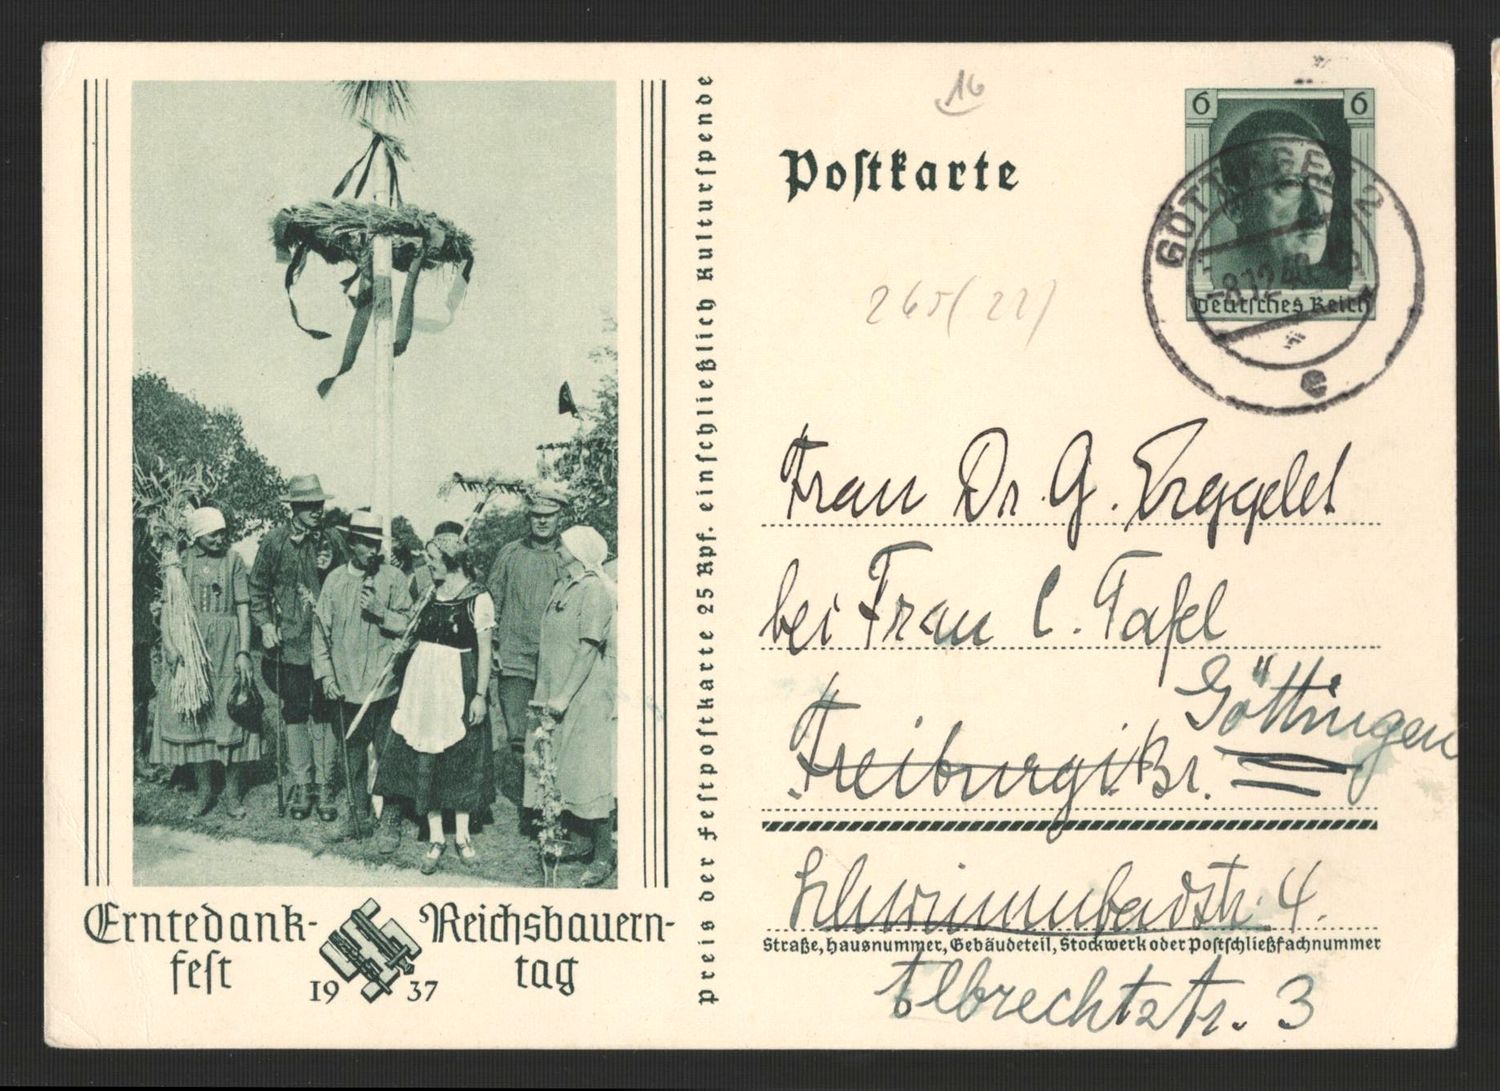 Erntedank-
fest
1937
Reichsbauern-
tag
Preis der Festpostkarte 25 Rpf. einschließlich Kulturspende
16
Postkarte
6 6
Deutsches Reich
GÖTTINGEN 2
-8.12.40
265 (22)
Frau Dr. G. Erggelet
bei Frau C. Tafel
Freiburg i. Br.
Göttingen
Schwimmbadstr. 4.
Straße, Hausnummer, Gebäudeteil, Stockwerk oder Postschließfachnummer
Albrechtstr. 3